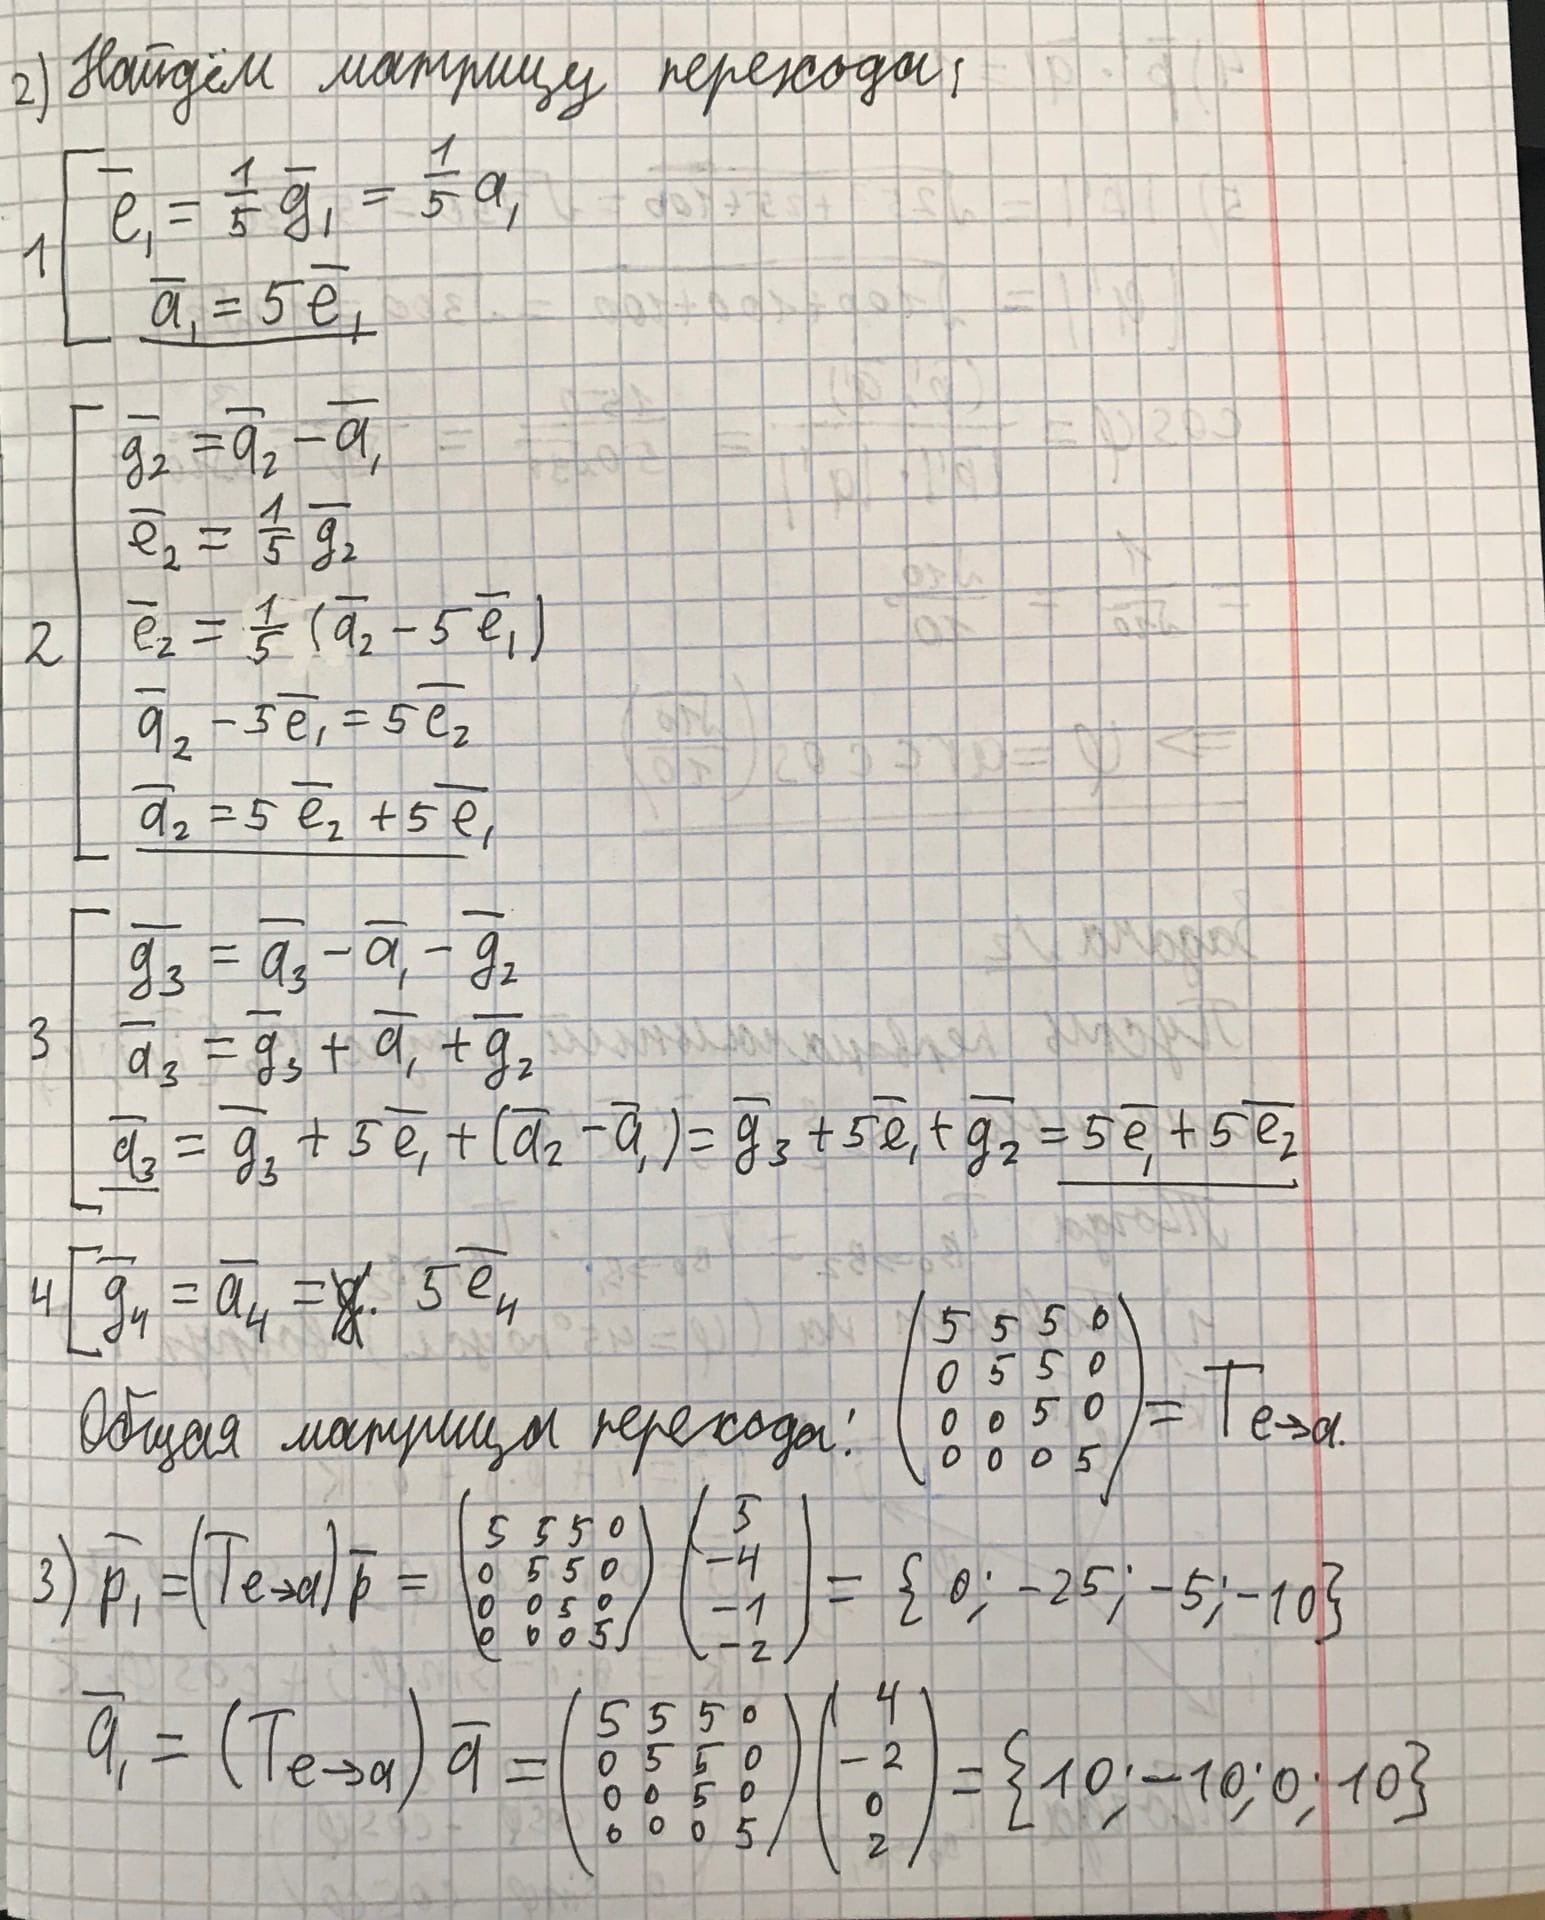 2) Найдём матрицу перехода:
1 [ e̅₁ = 1/5 g̅₁ = 1/5 a₁
a̅₁ = 5e̅₁
2 [ g̅₂ = a̅₂ - a̅₁
e̅₂ = 1/5 g̅₂
e̅₂ = 1/5 (a̅₂ - 5e̅₁)
a̅₂ - 5e̅₁ = 5e̅₂
a̅₂ = 5e̅₂ + 5e̅₁
3 [ g̅₃ = a̅₃ - a̅₁ - g̅₂
a̅₃ = g̅₃ + a̅₁ + g̅₂
a̅₃ = g̅₃ + 5e̅₁ + (a̅₂ - a̅₁) = g̅₃ + 5e̅₁ + g̅₂ = 5e̅₁ + 5e̅₂
4 [ g̅₄ = a̅₄ = 5e̅₄
Общая матрица перехода: (5 5 5 0
0 5 5 0
0 0 5 0
0 0 0 5) = T e→a.
3) p̅₁ = (T e→a) p̅ = (5 5 5 0
0 5 5 0
0 0 5 0
0 0 0 5) (5
-4
-1
-2) = {0; -25; -5; -10}
q̅₁ = (T e→a) q̅ = (5 5 5 0
0 5 5 0
0 0 5 0
0 0 0 5) (4
-2
0
2) = {10; -10; 0; 10}